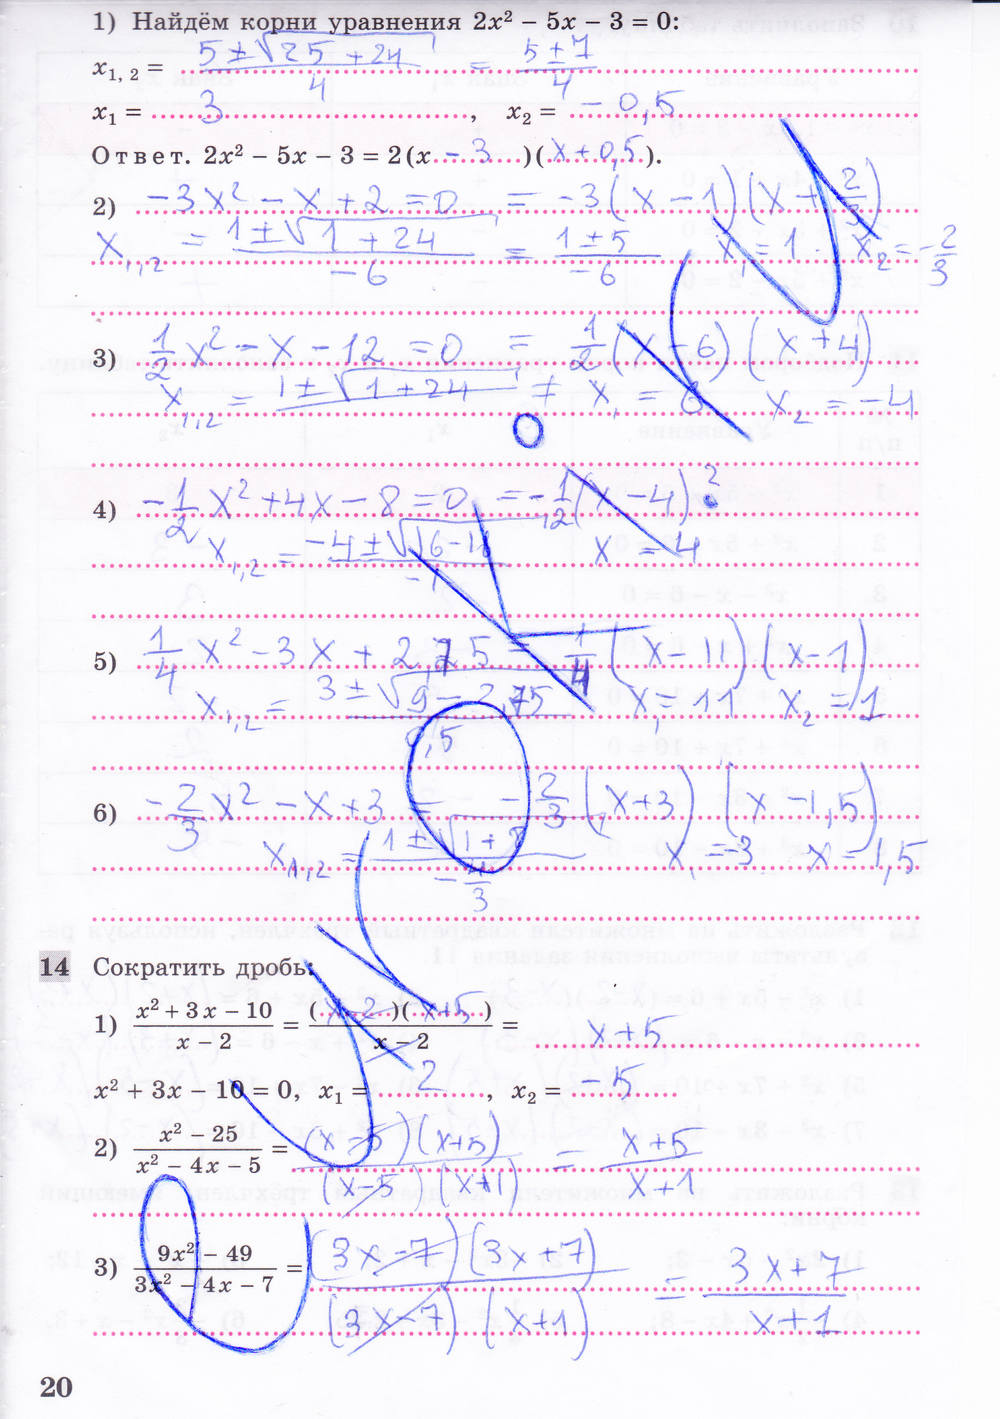 1) Найдём корни уравнения 2x² – 5x – 3 = 0:
x₁, ₂ = (5 ± √(25 + 24))/4 = (5 ± 7)/4
x₁ = 3, x₂ = – 0,5
Ответ. 2x² – 5x – 3 = 2(x – 3)(x + 0,5).
2) –3x² – x + 2 = 0 = –3(x – 1)(x + 2/3)
x₁,₂ = (1 ± √(1 + 24))/–6 = (1 ± 5)/–6 x₁ = 1 x₂ = –2/3
3) 1/2 x² – x – 12 = 0 = 1/2 (x – 6)(x + 4)
x₁,₂ = 1 ± √(1 + 24) ≠ x₁ = 6 x₂ = –4
4) –1/2 x² + 4x – 8 = 0 = –1/2 (x – 4)²
x₁,₂ = (–4 ± √(16 – 16))/–1 x = 4
5) 1/4 x² – 3x + 2,75 = 1/4 (x – 11)(x – 1)
x₁,₂ = (3 ± √(9 – 2,75))/0,5 x₁ = 11 x₂ = 1
6) –2/3 x² – x + 3 = –2/3 (x + 3)(x – 1,5)
x₁,₂ = (1 ± √(1 + 8))/(–4/3) x₁ = –3 x = 1,5
14 Сократить дробь:
1) (x² + 3x – 10)/(x – 2) = ((x – 2)(x + 5))/(x – 2) = x + 5
x² + 3x – 10 = 0, x₁ = 2, x₂ = 5
2) (x² – 25)/(x² – 4x – 5) = (x – 5)(x + 5)/(x – 5)(x + 1) = (x + 5)/(x + 1)
3) (9x² – 49)/(3x² – 4x – 7) = (3x – 7)(3x + 7)/(3x – 7)(x + 1) = (3x + 7)/(x + 1)
20